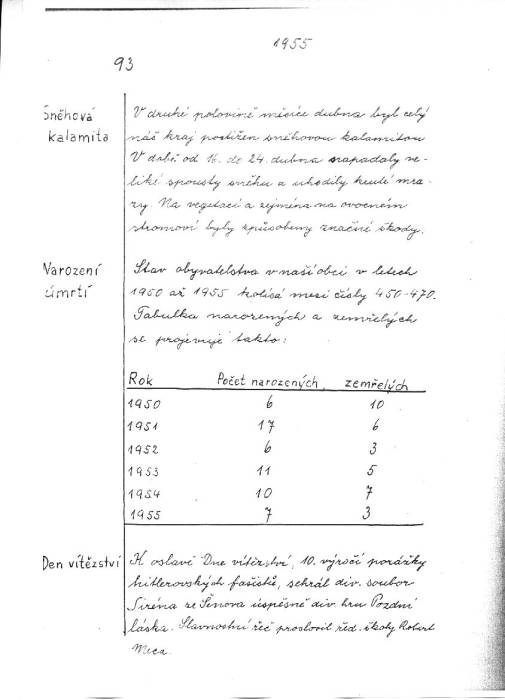 1955
93
Sněhová kalamita
V druhé polovině měsíce dubna byl celý
náš kraj postižen sněhovou kalamitou
V době od 16. do 24. dubna napadaly ve-
liké spousty sněhu a uhodily kruté mra-
zy. Na vegetaci a zejména na ovocném
stromoví byly způsobeny značné škody.
Narození úmrtí
Stav obyvatelstva v naší obci v letech
1950 až 1955 kolísá mezi čísly 450-470.
Tabulka narozených a zemřelých
se projevuje takto:
Rok Počet narozených, zemřelých
1950 6 10
1951 17 6
1952 6 3
1953 11 5
1954 10 7
1955 7 3
Den vítězství
K oslavě Dne vítězství, 10. výročí porážky
hitlerovských fašistů, sehrál div. soubor
Siréna ze Šenova úspěšně div. hru Pozdní
láska. Slavnostní řeč proslovil řed. školy Robert